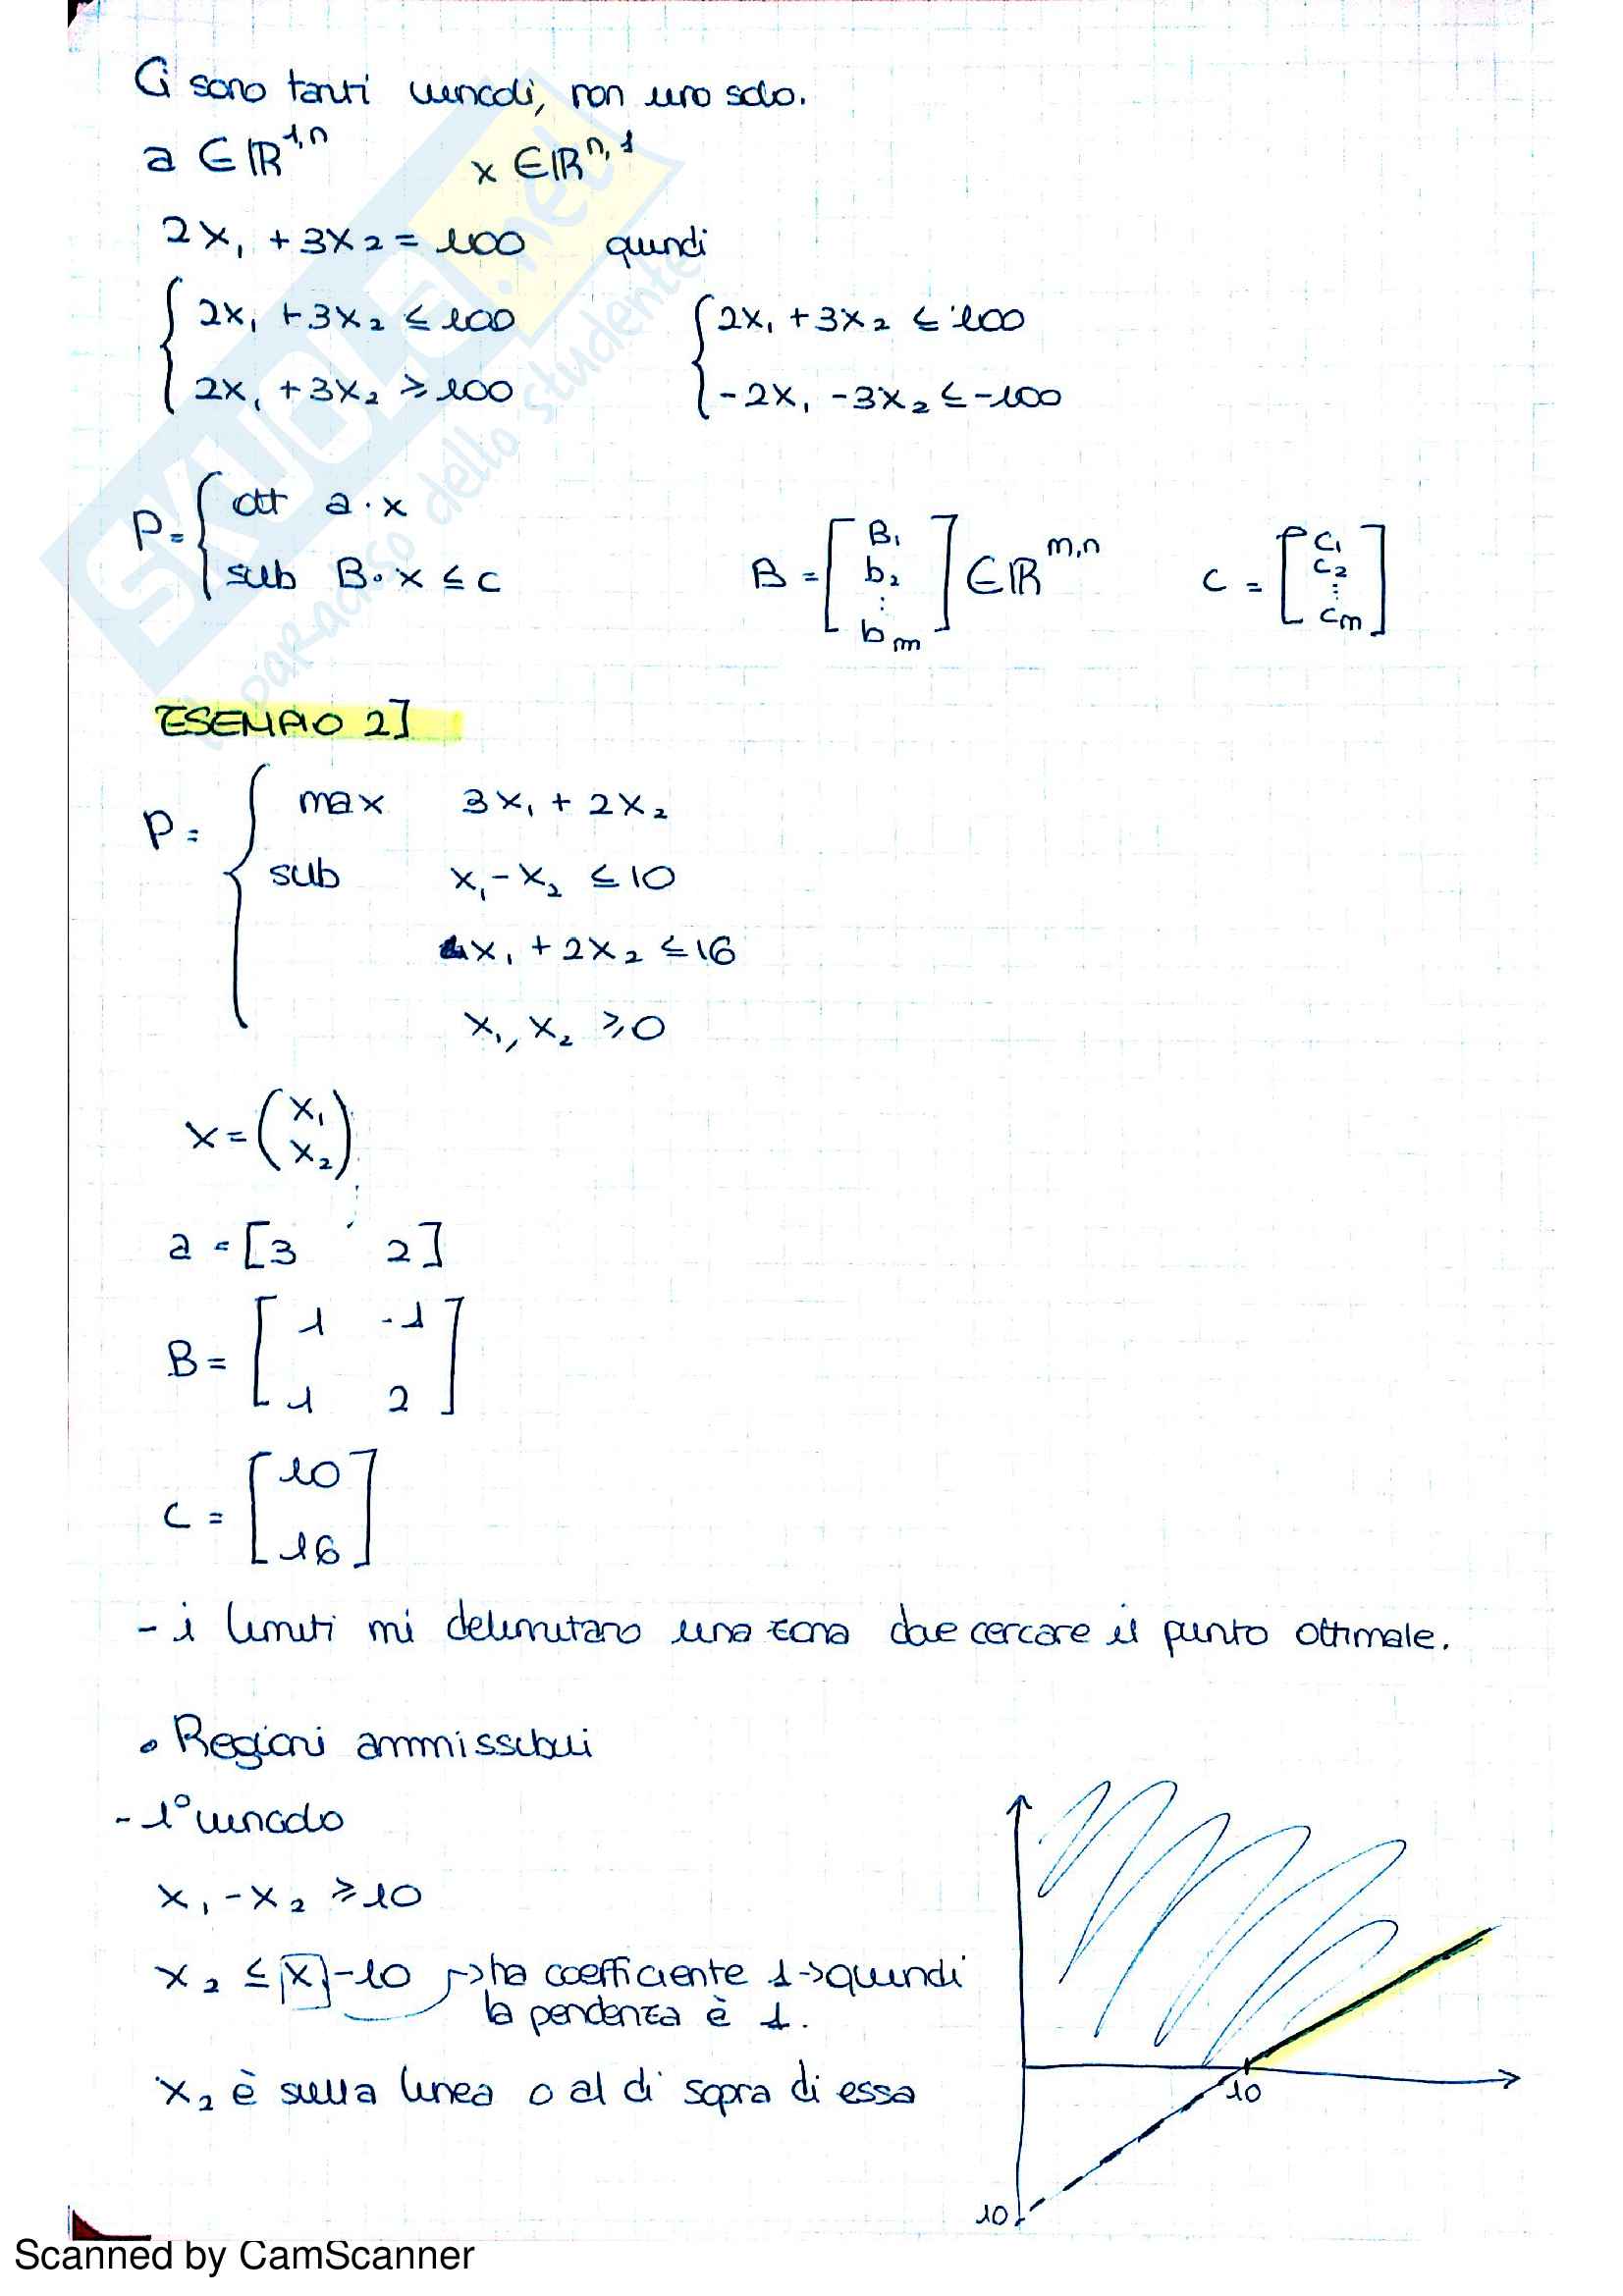 Ci sono tanti vincoli, non uno solo.
a ∈ ℝ^1,n x ∈ ℝ^n,1
2x₁ + 3x₂ = 100 quindi
{ 2x₁ + 3x₂ ≤ 100 { 2x₁ + 3x₂ ≤ 100
2x₁ + 3x₂ ≥ 100 -2x₁ - 3x₂ ≤ -100
P = { ott a · x
sub B · x ≤ c B = [B₁ b₂ ⋮ b_m] ∈ ℝ^m,n c = [c₁ c₂ ⋮ c_m]
ESEMPIO 2]
P = { max 3x₁ + 2x₂
sub x₁ - x₂ ≤ 10
x₁ + 2x₂ ≤ 16
x₁, x₂ ≥ 0
x = (x₁
x₂)
a = [3 2]
B = [1 -1
1 2]
c = [10
16]
- i limiti mi delimitano una zona dove cercare il punto ottimale.
• Regioni ammissibili
- 1° vincolo
x₁ - x₂ ≥ 10
x₂ ≤ x₁ - 10 → ha coefficiente 1 → quindi
la pendenza è 1.
x₂ è sulla linea o al di sopra di essa
10
10
SKUOLA.net
il paradiso dello studente
Scanned by CamScanner